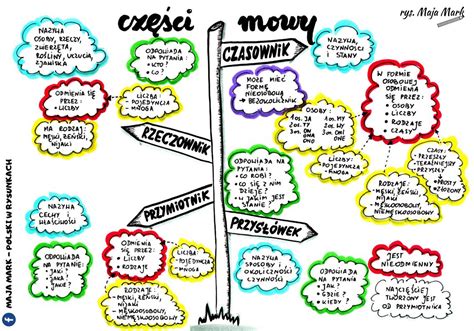 części mowy
rys. Maja Mark
CZASOWNIK
NAZYWA
CZYNNOŚCI
I STANY
MOŻE MIEĆ
FORMĘ
NIEOSOBOWĄ
BEZOKOLICZNIK
W FORMIE
OSOBOWEJ
ODMIENIA
SIĘ PRZEZ:
• OSOBY
• LICZBY
• RODZAJE
• CZASY
OSOBY:
1os. JA 1os. MY
2os. TY 2os. WY
3os. ON 3os. ONI
ONA ONE
ONO
LICZBY:
• POJEDYNCZA
• MNOGA
CZASY:
• PRZESZŁY
• TERAŹNIEJSZY
• PRZYSZŁY
PROSTY
ZŁOŻONY
RODZAJE:
• MĘSKI, ŻEŃSKI,
NIJAKI
• MĘSKOOSOBOWY,
NIEMĘSKOOSOBOWY
ODPOWIADA
NA
PYTANIA:
• CO ROBI?
• CO SIĘ Z NIM
DZIEJE?
• W JAKIM JEST
STANIE?
RZECZOWNIK
NAZYWA
OSOBY, RZECZY,
ZWIERZĘTA,
ROŚLINY, UCZUCIA,
ZJAWISKA
ODPOWIADA
NA PYTANIA:
• KTO?
• CO?
ODMIENIA SIĘ
PRZEZ:
• LICZBY
LICZBA:
• POJEDYNCZA
• MNOGA
MA RODZAJ:
MĘSKI, ŻEŃSKI,
NIJAKI
PRZYMIOTNIK
NAZYWA
CECHY I
WŁAŚCIWOŚCI
ODPOWIADA
NA PYTANIE:
• JAKI?
• JAKA?
• JAKIE?
ODMIENIA
SIĘ PRZEZ:
• LICZBY
• RODZAJE
LICZBA:
• POJEDYNCZA
• MNOGA
RODZAJE:
MĘSKI, ŻEŃSKI,
NIJAKI
MĘSKOOSOBOWY,
NIEMĘSKOOSOBOWY
PRZYSŁÓWEK
NAZYWA
SPOSÓB,
OKOLICZNOŚCI
CZYNNOŚCI
ODPOWIADA
NA PYTANIA:
• JAK?
• GDZIE?
• KIEDY?
JEST
NIEODMIENNY
NAJCZĘŚCIEJ
TWORZONY JEST
OD PRZYMIOTNIKA
MAJA MARK – POLSKI W RYSUNKACH